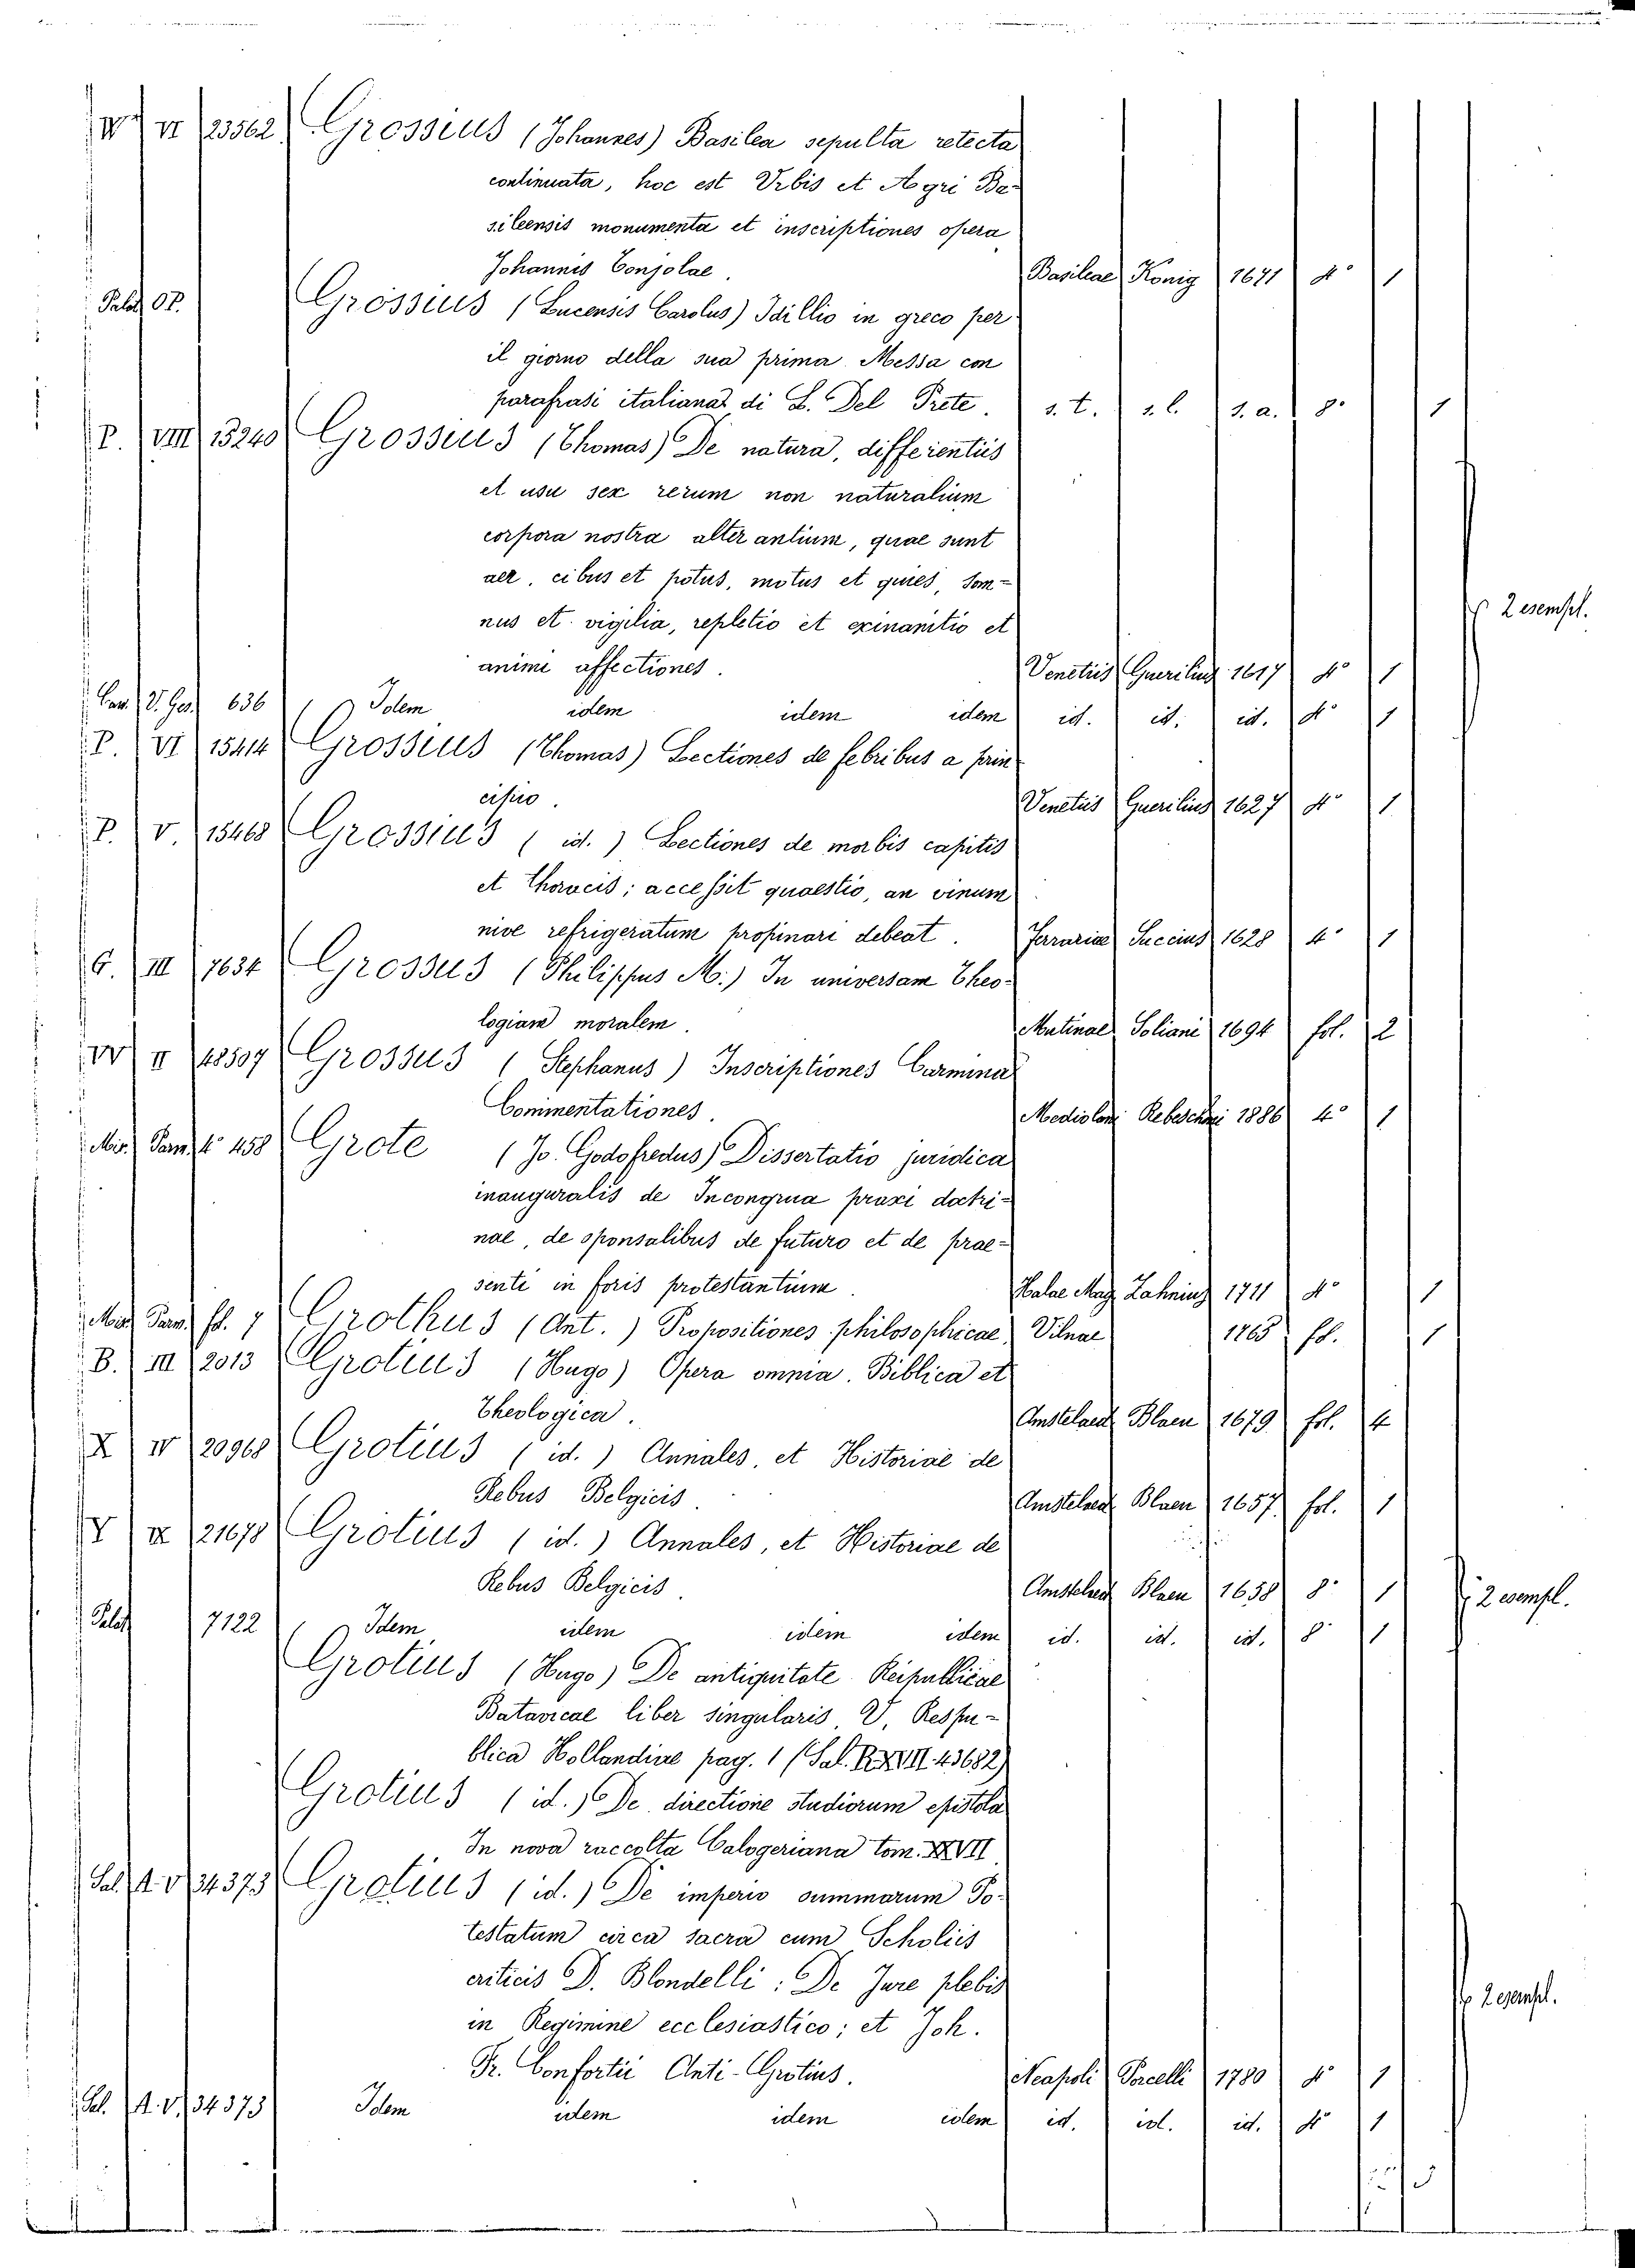 W VI 23562 Grossius (Johannes) Basilea sepulta retecta
continuata, hoc est Urbis et Agri Ba-
sileensis monumenta et inscriptiones opera
Johannis Tonjolae. Basileae König 1671 4° 1
Palat. OP. Grossius (Lucensis Carolus) Idillio in greco per
il giorno della sua prima Messa con
parafrasi italiana di L. Del Prete. s. t. s. l. s. a. 8° 1
P. VIII 15240 Grossius (Thomas) De natura, differentiis
et usu sex rerum non naturalium
corpora nostra alterantium, quae sunt
aer, cibus et potus, motus et quies, som-
nus et vigilia, repletio et exinanitio et 2 esempl.
animi affectiones. Venetiis Guerilius 1617 4° 1
V. Ges. 636 Idem idem idem idem id. id. id. 4° 1
P. VI 15414 Grossius (Thomas) Lectiones de febribus a prin
cipio. Venetiis Guerilius 1627 4° 1
P. V. 15468 Grossius (id.) Lectiones de morbis capitis
et Thoracis; accessit quaestio, an vinum
nive refrigeratum propinari debeat. Ferrariae Succius 1628 4° 1
G. III 7634 Grossus (Philippus M.) In universam Theo-
logiam moralem. Mutinae Soliani 1694 fol. 2
W II 48507 Grossus (Stephanus) Inscriptiones Carmina
Commentationes. Mediolani Rebeschini 1886 4° 1
Misc. Pam. 4° 458 Grote (Jo. Godofredus) Dissertatio juridica
inauguralis de Incongrua praxi doctri-
nae, de sponsalibus de futuro et de prae-
senti in foris protestantium. Halae Mag. Zahnius 1711 4° 1
Misc. Pam. fol. 7 Grothus (Ant.) Propositiones philosophicae Vilnae 1765 fol. 1
B. III 2013 Grotius (Hugo) Opera omnia. Biblica et
Theologica. Amstelaed. Blaeu 1679 fol. 4
X IV 20968 Grotius (id.) Annales, et Historiae de
Rebus Belgicis. Amstelaed. Blaeu 1657 fol. 1
Y IX 21678 Grotius (id.) Annales, et Historiae de
Rebus Belgicis. Amstelaed. Blaeu 1658 8° 1 2 esempl.
Palat. 7122 Idem idem idem idem id. id. id. 8° 1
Grotius (Hugo) De antiquitate Reipublicae
Batavicae liber singularis, V. Respu-
blica Hollandiae pag. 1 (Sal. R XVII 43682)
Grotius (id.) De directione studiorum epistola
In nova raccolta Calogeriana tom. XXVII
Sal. A. V. 34373 Grotius (id.) De imperio summarum Po-
testatum circa sacra cum Scholiis
criticis D. Blondelli: De Jure plebis
in Regimine ecclesiastico; et Joh. 2 esempl.
Fr. Confortii Anti-Grotius. Neapoli Porcelli 1780 4° 1
Sal. A. V. 34373 Idem idem idem idem id. id. id. 4° 1